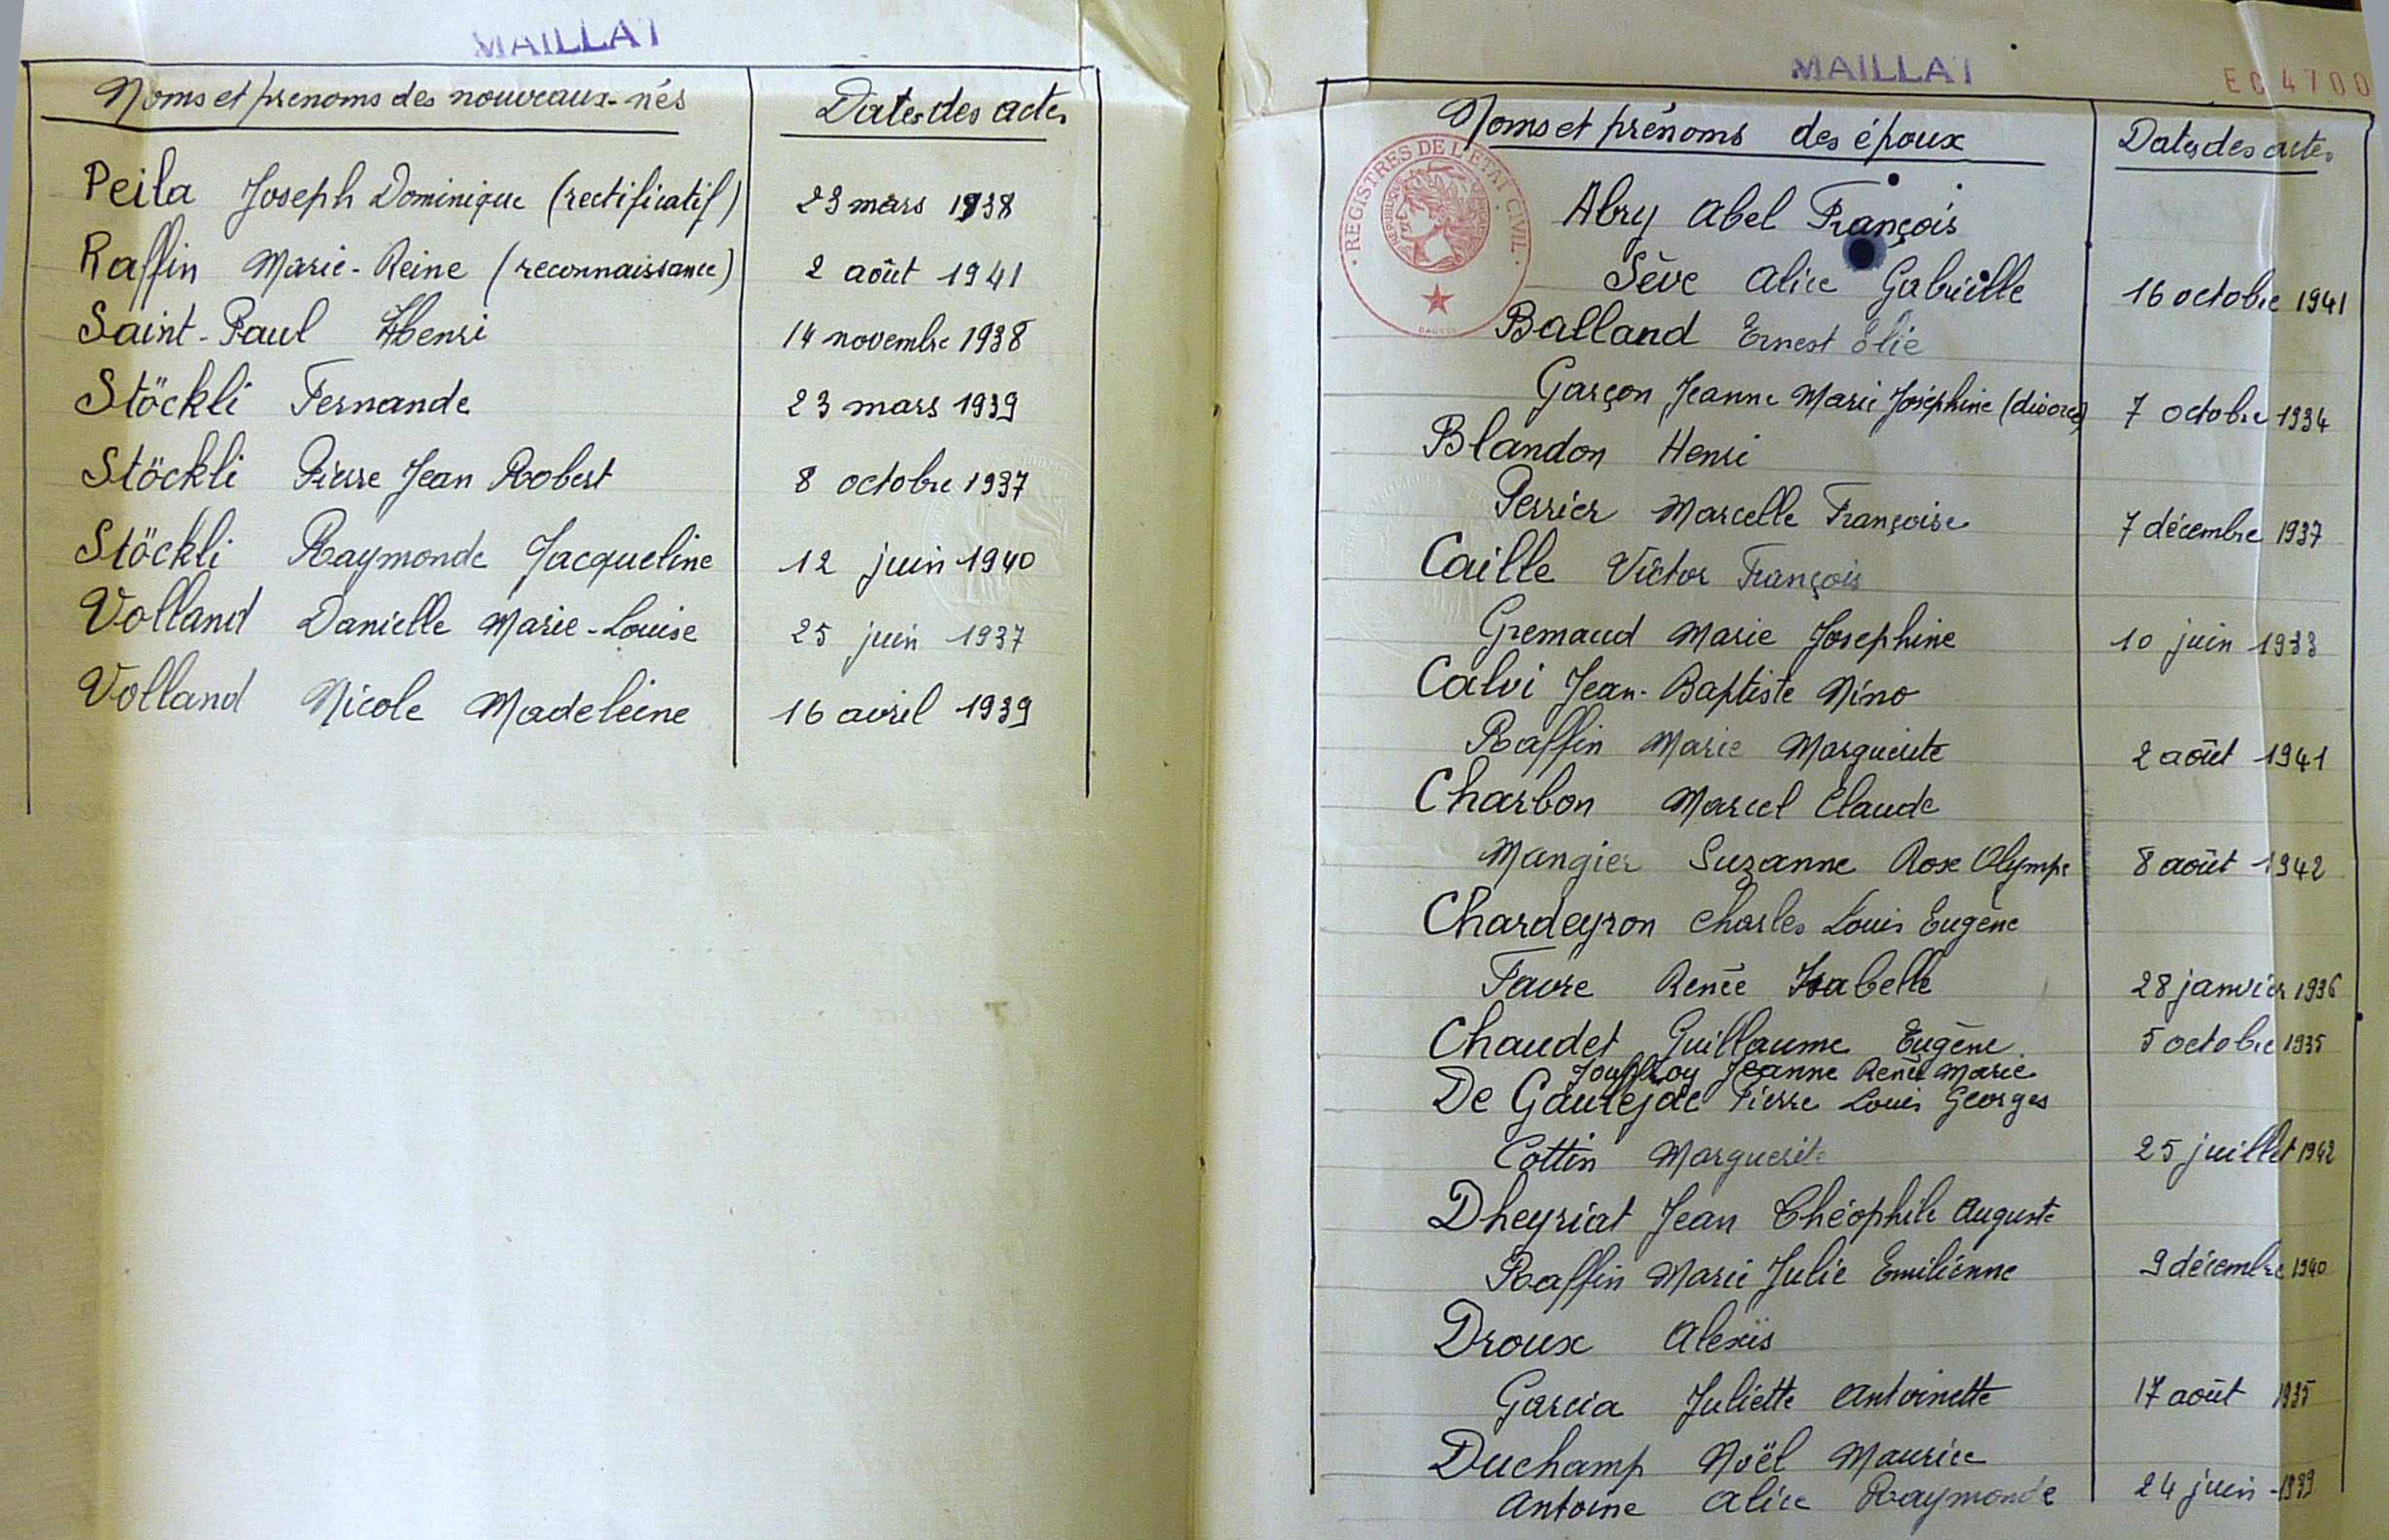 MAILLAT
Noms et prenoms des nouveaux-nés Dates des actes
Peila Joseph Dominique (rectificatif) 23 mars 1938
Raffin Marie-Reine (reconnaissance) 2 août 1941
Saint-Paul Henri 14 novembre 1938
Stöckli Fernande 23 mars 1939
Stöckli Pierre Jean Robert 8 octobre 1937
Stöckli Raymonde Jacqueline 12 juin 1940
Volland Danielle Marie-Louise 25 juin 1937
Volland Nicole Madeleine 16 avril 1939
MAILLAT
EC 4700
Noms et prénoms des époux Dates des actes
REGISTRES DE L'ETAT CIVIL
Abry Abel François
Sève Alice Gabrielle 16 octobre 1941
Balland Ernest Elie
Garçon Jeanne Marie Joséphine (divorce) 7 octobre 1934
Blandon Henri
Perrier Marcelle Françoise 7 décembre 1937
Caille Victor François
Gremaud Marie Josephine 10 juin 1933
Calvi Jean-Baptiste Nino
Raffin Marie Marguerite 2 août 1941
Charbon Marcel Claude
Mangier Suzanne Rose Olympe 8 août 1942
Chardeyron Charles Louis Eugène
Favre Renée Isabelle 28 janvier 1936
Chaudet Guillaume Eugène 5 octobre 1935
Jouffroy Jeanne Renée Marie
De Gaulejac Pierre Louis Georges
Cottin Marguerite 25 juillet 1942
Dheyriat Jean Théophile Auguste
Raffin Marie Julie Emilienne 9 décembre 1940
Droux Alexis
Garcia Juliette Antoinette 17 août 1935
Duchamp Noël Maurice
Antoine Alice Raymonde 24 juin 1939